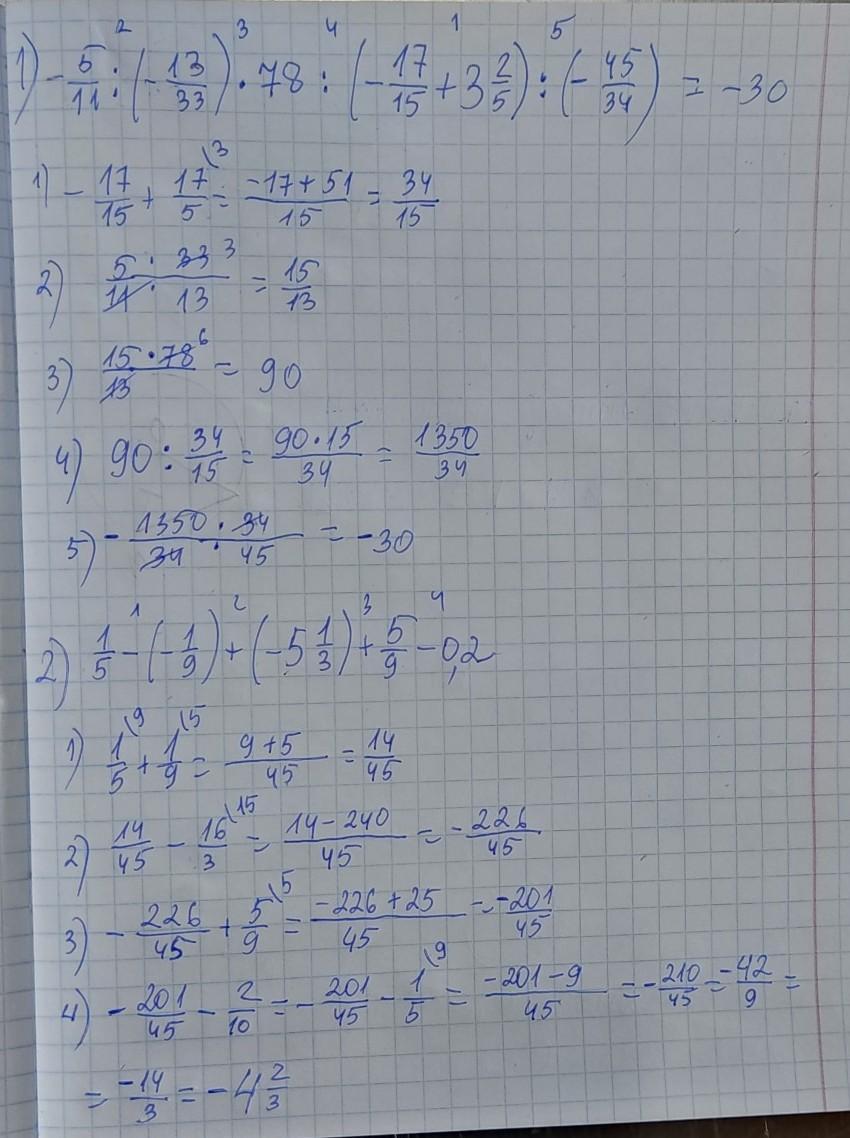 2 3 4 1 5
1) -5/11 : (-13/33) · 78 : (-17/15 + 3 2/5) : (-45/34) = -30
1) -17/15 + 17/5 \3 = (-17+51)/15 = 34/15
2) (5 · 33 3)/(11 · 13) = 15/13
3) (15 · 78 6)/13 = 90
4) 90 : 34/15 = (90 · 15)/34 = 1350/34
5) -(1350 · 34)/(34 · 45) = -30
1 2 3 4
2) 1/5 - (-1/9) + (-5 1/3) + 5/9 - 0,2
1) 1/5 \9 + 1/9 \5 = (9+5)/45 = 14/45
2) 14/45 - 16/3 \15 = (14-240)/45 = -226/45
3) -226/45 + 5/9 \5 = (-226+25)/45 = -201/45
4) -201/45 - 2/10 = -201/45 - 1/5 \9 = (-201-9)/45 = -210/45 = -42/9 =
= -14/3 = -4 2/3